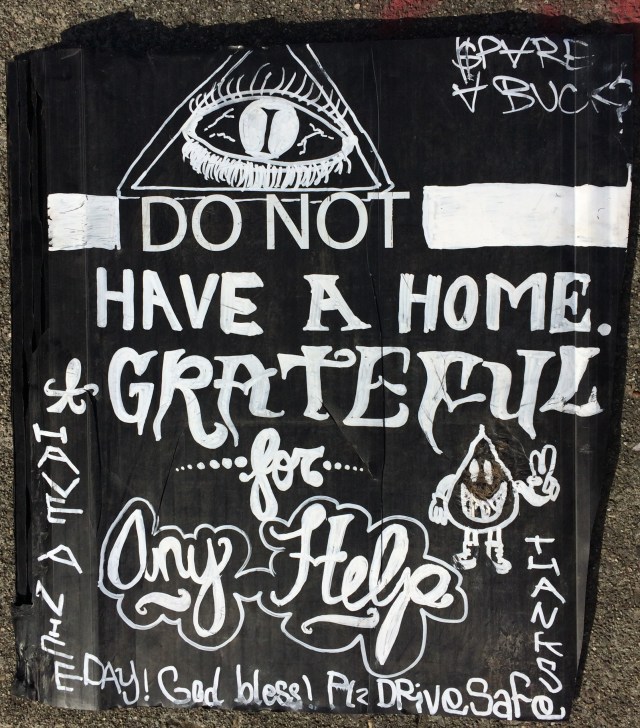 $PARE
A BUCK?
DO NOT
HAVE A HOME.
GRATEFUL
for
Any Help
THANKS
*HAVE A NICE
DAY! God bless! Plz DRiVe Safe